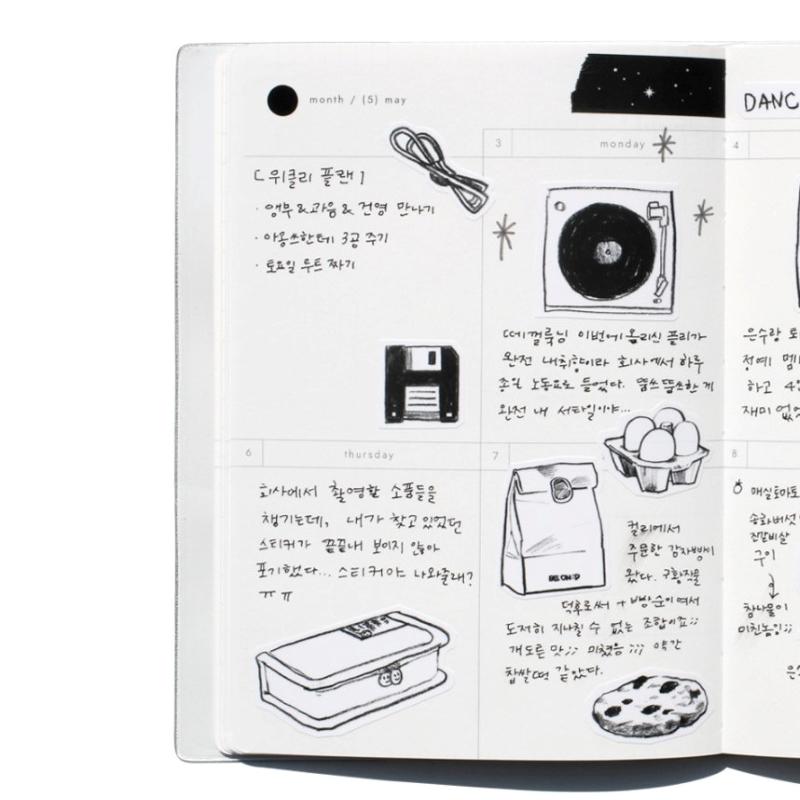 month / (5) may
DANC
3
monday
4
[위클리 플랜]
· 앵뿌 & 과음 & 건영 만나기
· 아몽쓰한테 3공 주기
· 토요일 루트 짜기
떼껄룩님 이번에 올리신 플리가
완전 내취향이라 회사에서 하루
종일 노동요로 들었다.
완전 내 스타일이야...
은수랑
하고
재미 없
6
thursday
7
8
회사에서 촬영할 소품들을
챙기는데, 내가 찾고 있었던
스티커가 끝끝내 보이지 않아
포기했다... 스티커야 나와줄래?
ㅠㅠ
컬리에서
주문한 감자빵이
왔다. 구황작물
덕후로써 + 빵순이여서
도저히 지나칠 수 없는 조합이죠;;
개도른 맛;; 미쳤음 ;;; 약간
찹쌀떡 같았다.
매실토마토
송화버섯
진갈비살
구이
참나물이
미친놈임;;
은수